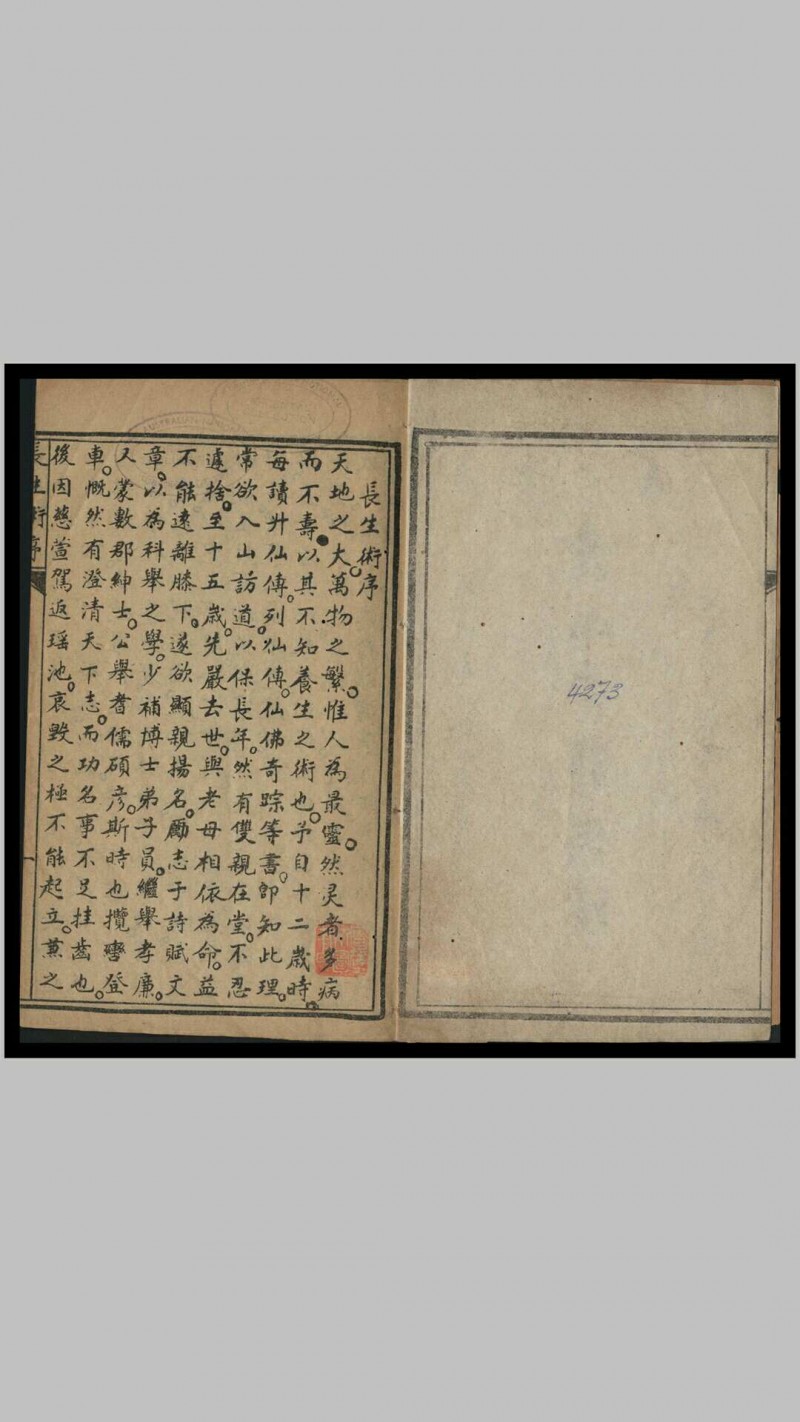 長生術序
天地之大。萬物之繁。惟人為最靈。然灵者多病
而不壽。以其不知養生之術也。予自十二歲時。
每讀升仙傳。列仙傳。仙佛奇踪等書。即知此理。
常欲入山訪道。以保長年。然有雙親在堂。不忍
遽捨。至十五歲。先嚴去世。與老母相依為命。益
不能遠離膝下。遂欲顯親揚名。勵志于詩賦文
章。以為科舉之學。少補博士弟子員。繼舉孝廉。
又蒙數郡紳士。公舉耆儒碩彥。斯時也攬轡登
車。慨然有澄清天下志。而功名事不足挂齒也。
後因慈萱駕返瑶池。哀毀之極不能起立。兼之
長生術序
一
4273